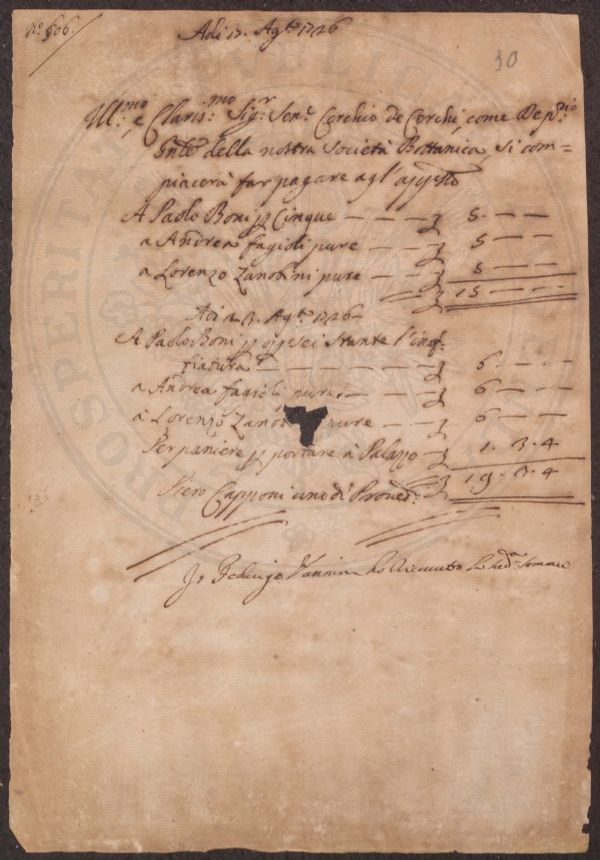 N.° 606.
Adi 17. Agto 1726
30
Ill:mo, e Claris:mo Sig:r Sen:e Cerchio de Cerchi, come Dep:
della nostra Società Bottanica, si com=
piacerà far pagare agl'app
A Paolo Boni p Cinque — — — 5. — —
a Andrea fagioli pure — — — 5 — —
a Lorenzo Zanobini pure — — 5 — —
15 — —
Adi 23. Agto 1726
A Paolo Boni p sei Stante l'inaf=
fiatura — — — — — 6 — —
a Andrea fagioli pure — — 6 — —
à Lorenzo Zanob pure — 6 — —
Per paniere p portare à Palazzo — 1. 3. 4
19. 3. 4
Piero Capponi uno di Proved:
Io Federigo Vannini ho ricevuto la sud:a Somma
PROSPERITA PVBLICAE